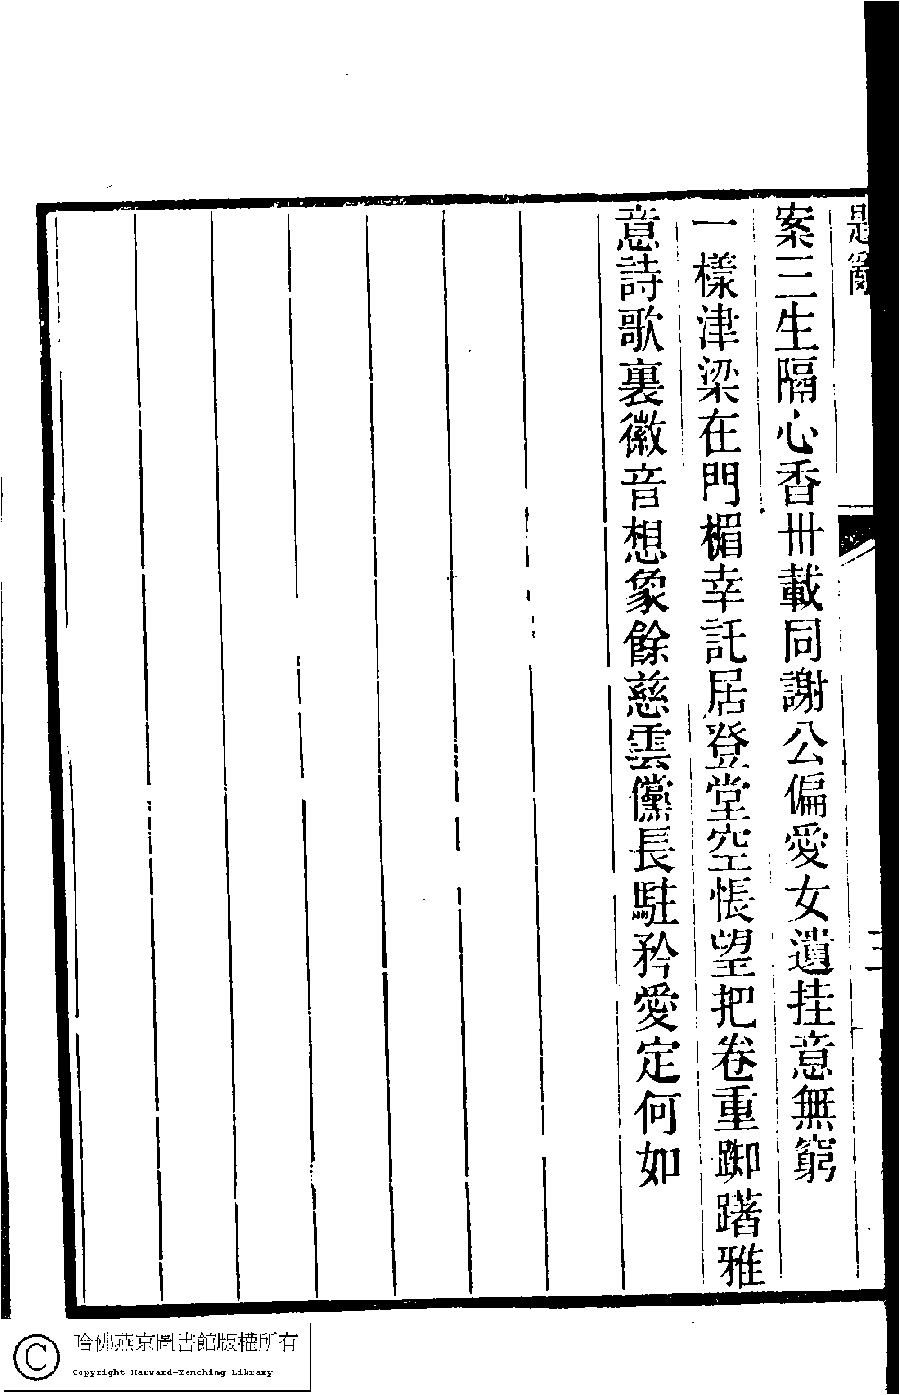 題辭
三
案三生隔心香卅載同謝公偏愛女遺挂意無窮
一樣津梁在門楣幸託居登堂空悵望把卷重踟躇雅
意詩歌裏徽音想象餘慈雲儻長駐矜愛定何如
哈佛燕京圖書館版權所有
Copyright Harvard-Yenching Library